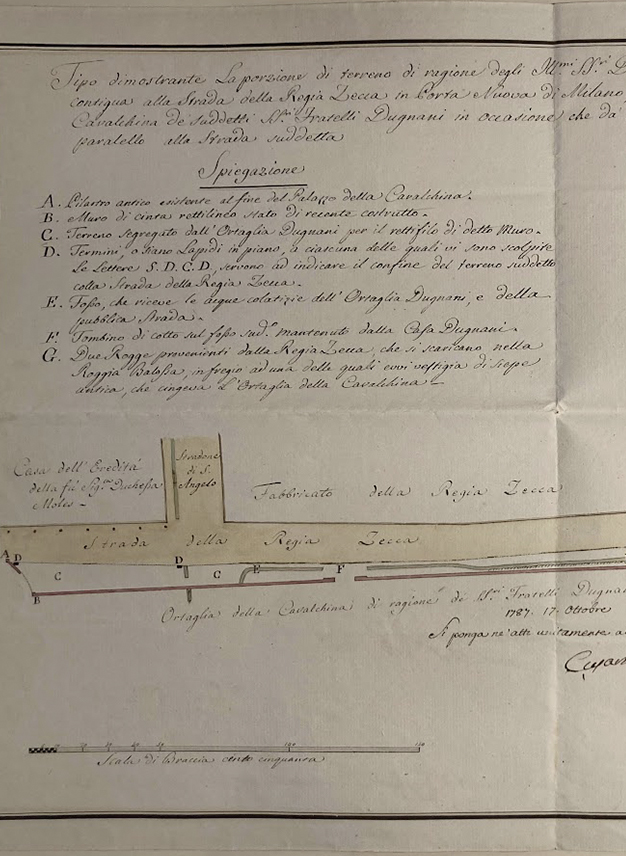 Tipo dimostrante La porzione di terreno di ragione degli Ill.mi SS.ri D
contigua alla Strada della Regia Zecca in Porta Nuova di Milano
Cavalchina de' suddetti SS.ri Fratelli Dugnani in occasione che da
paralello alla Strada suddetta
Spiegazione
A. Pilastro antico esistente al fine del Palazzo della Cavalchina.
B. Muro di cinta rettilineo stato di recente costrutto.
C. Terreno segregato dall'Ortaglia Dugnani per il rettifilo di detto Muro.
D. Termini, o siano Lapidi in piano, a ciascuna delle quali vi sono scolpite
Le Lettere S. D. C. D, servono ad indicare il confine del terreno suddetto
colla Strada della Regia Zecca.
E. Fosso, che riceve le acque colatizie dell'Ortaglia Dugnani, e della
pubblica Strada.
F. Tombino di cotto sul fosso sud.o mantenuto dalla Casa Dugnani.
G. Due Rogge provenienti dalla Regia Zecca, che si scaricano nella
Roggia Balossa, in fregio ad una delle quali evvi vestigia di siepe
antica, che cingeva L'Ortaglia della Cavalchina
Casa dell'Eredità
della fù Sig.ra Duchessa
Moles
Stradone
di S.
Angelo
Fabbricato della Regia Zecca
Strada della Regia Zecca
A D D
C C E F
B
Ortaglia della Cavalchina di ragione de' SS.ri Fratelli Dugnani
1787. 17. Ottobre
Si ponga ne' atti unitamente a
50 100 150
Scala di Braccia cento cinquanta